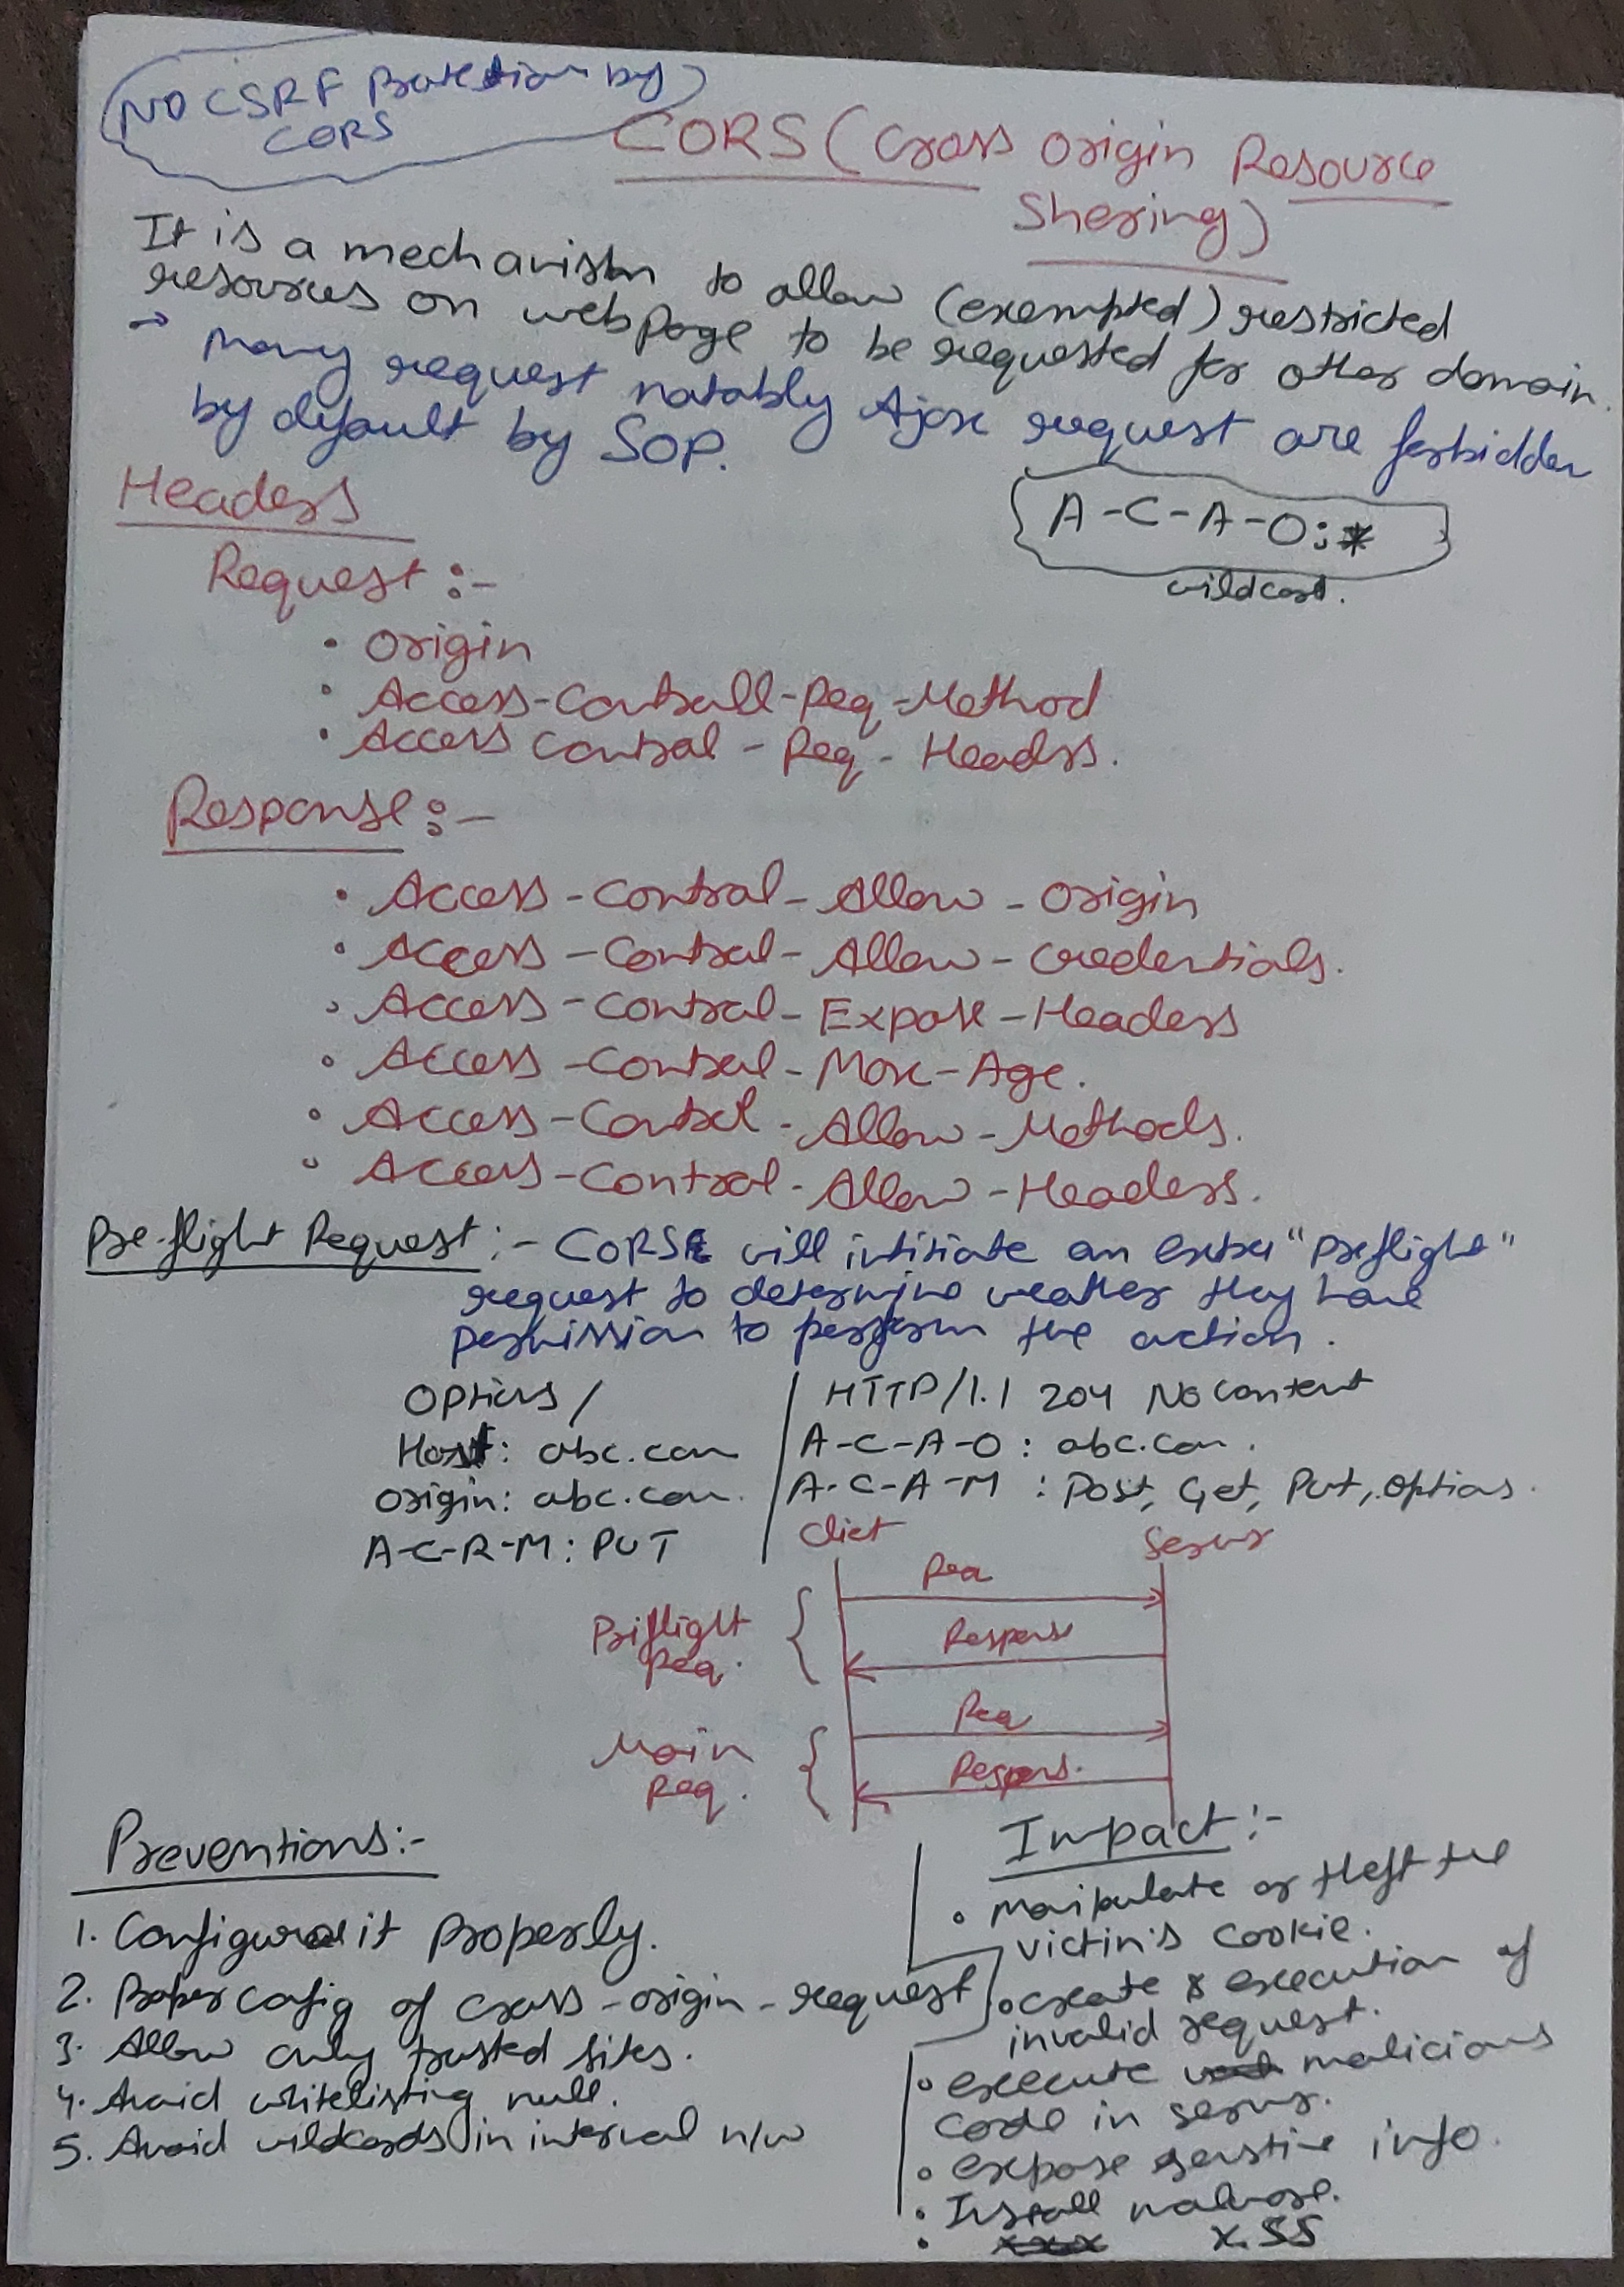 NO CSRF Protection by
CORS
CORS (Cross Origin Resource
Shering)
It is a mechanism to allow (exempted) restricted
resources on webpage to be requested for other domain.
→ Many request notably Ajax request are forbidden
by default by SOP.
Headers
A-C-A-O:*
wildcard.
Request :-
• Origin
• Access-Controll-Req-Method
• Access Control-Req-Headrs.
Response:-
• Access-Control-Allow-Origin
• Access-Control-Allow-Credentials.
• Access-Control-Expose-Headers
• Access-Control-Max-Age.
• Access-Control-Allow-Methods.
• Access-Control-Allow-Headers.
Pre-flight Request:- CORS will intitiate an extra "Preflight"
request to determine weather they have
permission to perform the action.
Options /
Host: abc.com
Origin: abc.com.
A-C-R-M: PUT
HTTP/1.1 204 No Content
A-C-A-O: abc.com.
A-C-A-M: Post, Get, Put, Options.
Cliet Server
Req
Priflight
Req.
Response
Req
Main
Req.
Respons.
Preventions:-
1. Configure it Properly.
2. Proper config of cross-origin-request
3. Allow only trusted sites.
4. Avoid whitelisting null.
5. Avoid wildcards in internal n/w
Impact:-
• Manipulate or theft the
victim's cookie.
• create & execution of
invalid request.
• execute malicious
code in server.
• expose senstive info.
• Install malware.
• XSS